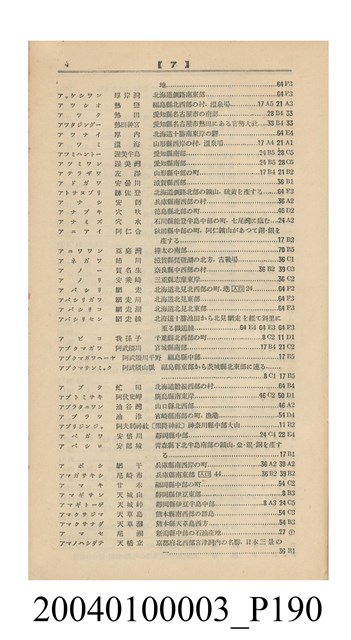 4 【ア】
地 64 F3
アッケシワン 厚岸灣 北海道釧路南東部 64 F3
アツシオ 熱鹽 福島縣北西部の村、溫泉場 17 A5 21 A3
アツタ 熱田 愛知縣名古屋市の南部 28 B4 33
アツタジングー 熱田神宮 愛知縣名古屋市熱田にある官幣大社 33 B4 33
アツナイ 厚內 北海道十勝南東岸の驛 64 E4
アツミ 溫海 山形縣西岸の村、溫泉場 17 A4 21 A1
アツミハントー 渥美半島 愛知縣南部 24 B5 28 C5
アツミワン 渥美灣 愛知縣南部 24 B5 28 C5
アテラザワ 左澤 山形縣中部の町 17 B4 21 B2
アドガワ 安曇川 滋賀縣西部 36 B1
アトサヌプリ 跡佐登 北海道釧路北部の鑛山、硫黃を產する 64 F3
アナシ 安師 兵庫縣南西部の村 36 A2
アナブキ 穴吹 德島縣北部の町 46 D2
アナミズ 穴水 石川縣能登半島中部の町、七尾灣に臨む 24 A2
アニアイ 阿仁合 秋田縣中部の町、阿仁鑛山があつて銅・銀を
產する 17 B2
アニワワン 亞庭灣 樺太の南部 70 B5
アネガワ 姉川 滋賀縣琵琶湖の北方、古戰場 36 C1
アノー 賀名生 奈良縣中西部の村 36 B2 39 C3
アノリ 安乘崎 三重縣志摩東岸 36 C2
アバシリ 網走 北海道北見北西部の町、港 64 24
アバシリガワ 網走川 北海道北見東部 64 F3
アバシリコ 網走湖 北海道北見北部 64 F3
アバシリセン 網走線 北海道十勝池田から北見網走を經て斜里に
至る鐵道線 64 E4 64 E3 64 F3
アビコ 我孫子 千葉縣北西部の町 8 C2 11 D1
アブクマガワ 阿武隈川 宮城縣南部 17 B4 21 C2
アブクマガワヘーヤ 阿武隈川平野 福島縣中部 17 B5
アブクマサンミャク 阿武隈山脈 福島縣東部から茨城縣北東部に連る
8 C1 17 B5
アブタ 虻田 北海道膽振西部の村 64 B4
アブトミサキ 阿伏兎岬 廣島縣南東岸 46 C2 50 D1
アブラタニワン 油谷灣 山口縣北西部 46 A2
アブラツ 油津 宮崎縣南部の町、漁港 54 D4
アブリジンジャ 阿夫利神社(雨降神社) 神奈川縣中部大山 11 B2
アベガワ 安倍川 靜岡縣中部 24 C4 28 E4
アベシロ 安部城 靑森縣下北半島南部の鑛山、金・銀・銅を產す
る 17 B1
アボシ 網干 兵庫縣南西岸の町 36 A2 39 A2
アマガサキシ 尼崎市 兵庫縣南東部 44 36 B2 39 B2
アマギ 甘木 福岡縣中部の町 54 C2
アマギサン 天城山 靜岡縣伊豆東部 8 B3
アマギトーゲ 天城峠 靜岡縣伊豆半島中部 8 A3 24 C5
アマクサジマ 天草島 熊本縣南西部の群島 54 C3
アマクサナダ 天草灘 熊本縣天草島西方 54 B3
アマセ 尼瀨 新潟縣中部の石油產地 27
アマノハシダテ 天橋立 京都府北西部宮津灣內の名勝、日本三景の
一 36 B1
20040100003_P190